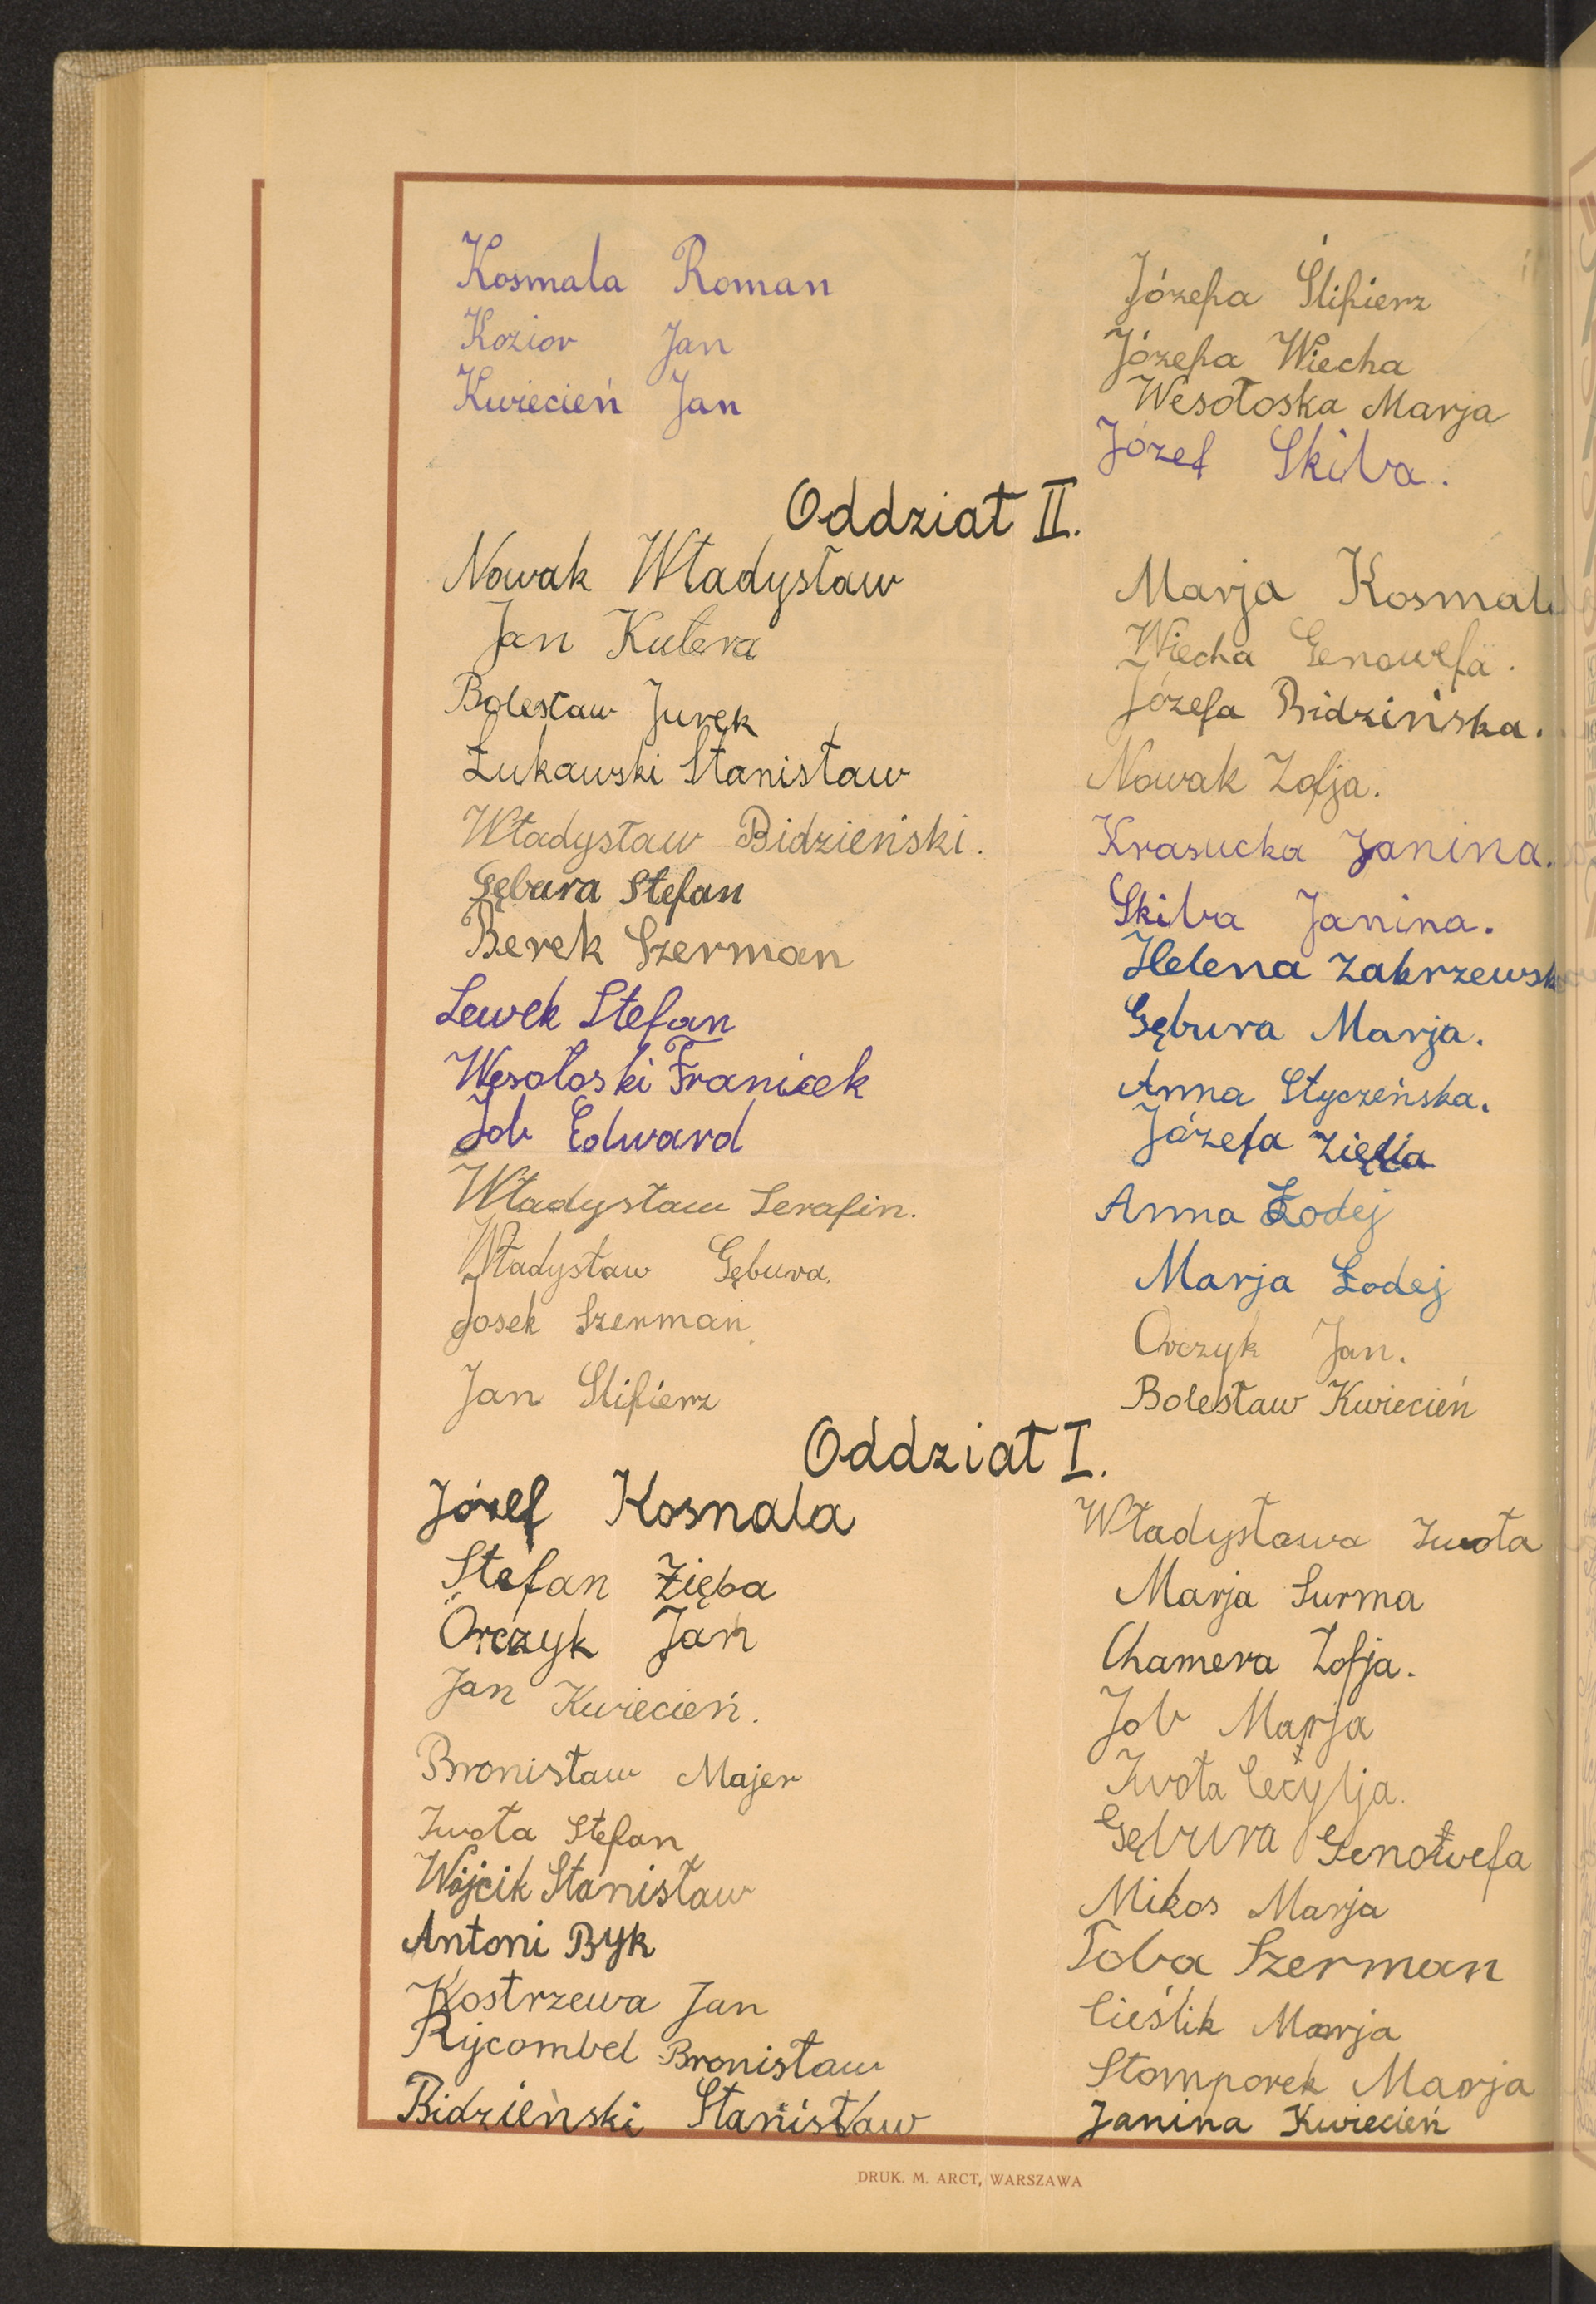 Kosmala Roman
Kozior Jan
Kwiecień Jan
Józefa Ślifierz
Józefa Wiecha
Wesołoska Marja
Józef Skiba.
Oddział II.
Nowak Władysław
Jan Kutera
Bolesław Jurek
Łukawski Stanisław
Władysław Bidzieński.
Gębura Stefan
Berek Szerman
Lewek Stefan
Wesołoski
Job Edward
Władysław Serafin.
Władysław Gębura.
Josek Szerman
Jan Slifierz
Marja Kosmal
Wiecha Genowefa.
Józefa Bidzińska.
Nowak Zofja.
Krasucka Janina.
Skiba Janina.
Helena Zakrzewsk
Gębura Marja.
Anna Styczeńska.
Józefa Zięba
Anna Łodej
Marja Łodej
Orczyk Jan.
Bolesław Kwiecień
Oddział I.
Józef Kosnala
Stefan Zięba
Orczyk Jan
Jan Kwiecień.
Bronisław Majer
Iwota Stefan
Wójcik Stanisław
Antoni Byk
Kostrzewa Jan
Rycombel Bronisław
Bidzieński Stanisław
Władysława Iwota
Marja Surma
Chamera Zofja.
Job Marja
Iwota Cecylja.
Gębura Genowefa
Mikos Marja
Toba Szerman
Cieślik Marja
Stomporek Marja
Janina Kwiecień
DRUK. M. ARCT, WARSZAWA